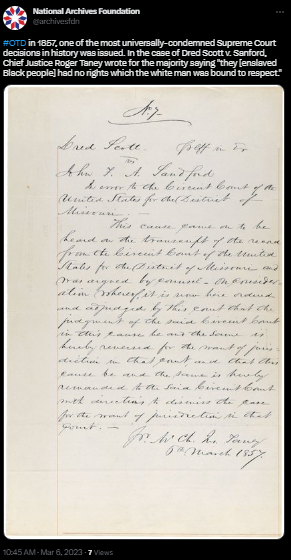 National Archives Foundation
@archivesfdn
#OTD in 1857, one of the most universally-condemned Supreme Court
decisions in history was issued. In the case of Dred Scott v. Sanford,
Chief Justice Roger Taney wrote for the majority saying "they [enslaved
Black people] had no rights which the white man was bound to respect."
No 7
Dred Scott Plff in Er
vs
John F. A. Sandford
In error to the Circuit Court of the
United States for the District of
Missouri. —
This cause came on to be
heard on the transcript of the record
from the Circuit Court of the United
States for the District of Missouri and
was argued by counsel — On consider-
ation whereof, it is now here ordered
and adjudged by this court that the
judgment of the said Circuit Court
in this cause be and the same is
hereby reversed for the want of juris-
diction in that court and that this
cause be and the same is hereby
remanded to the said Circuit Court
with directions to dismiss the case
for the want of jurisdiction in that
Court. —
Pr. Mr Ch. Js. Taney
6th March 1857.
10:45 AM · Mar 6, 2023 · 7 Views